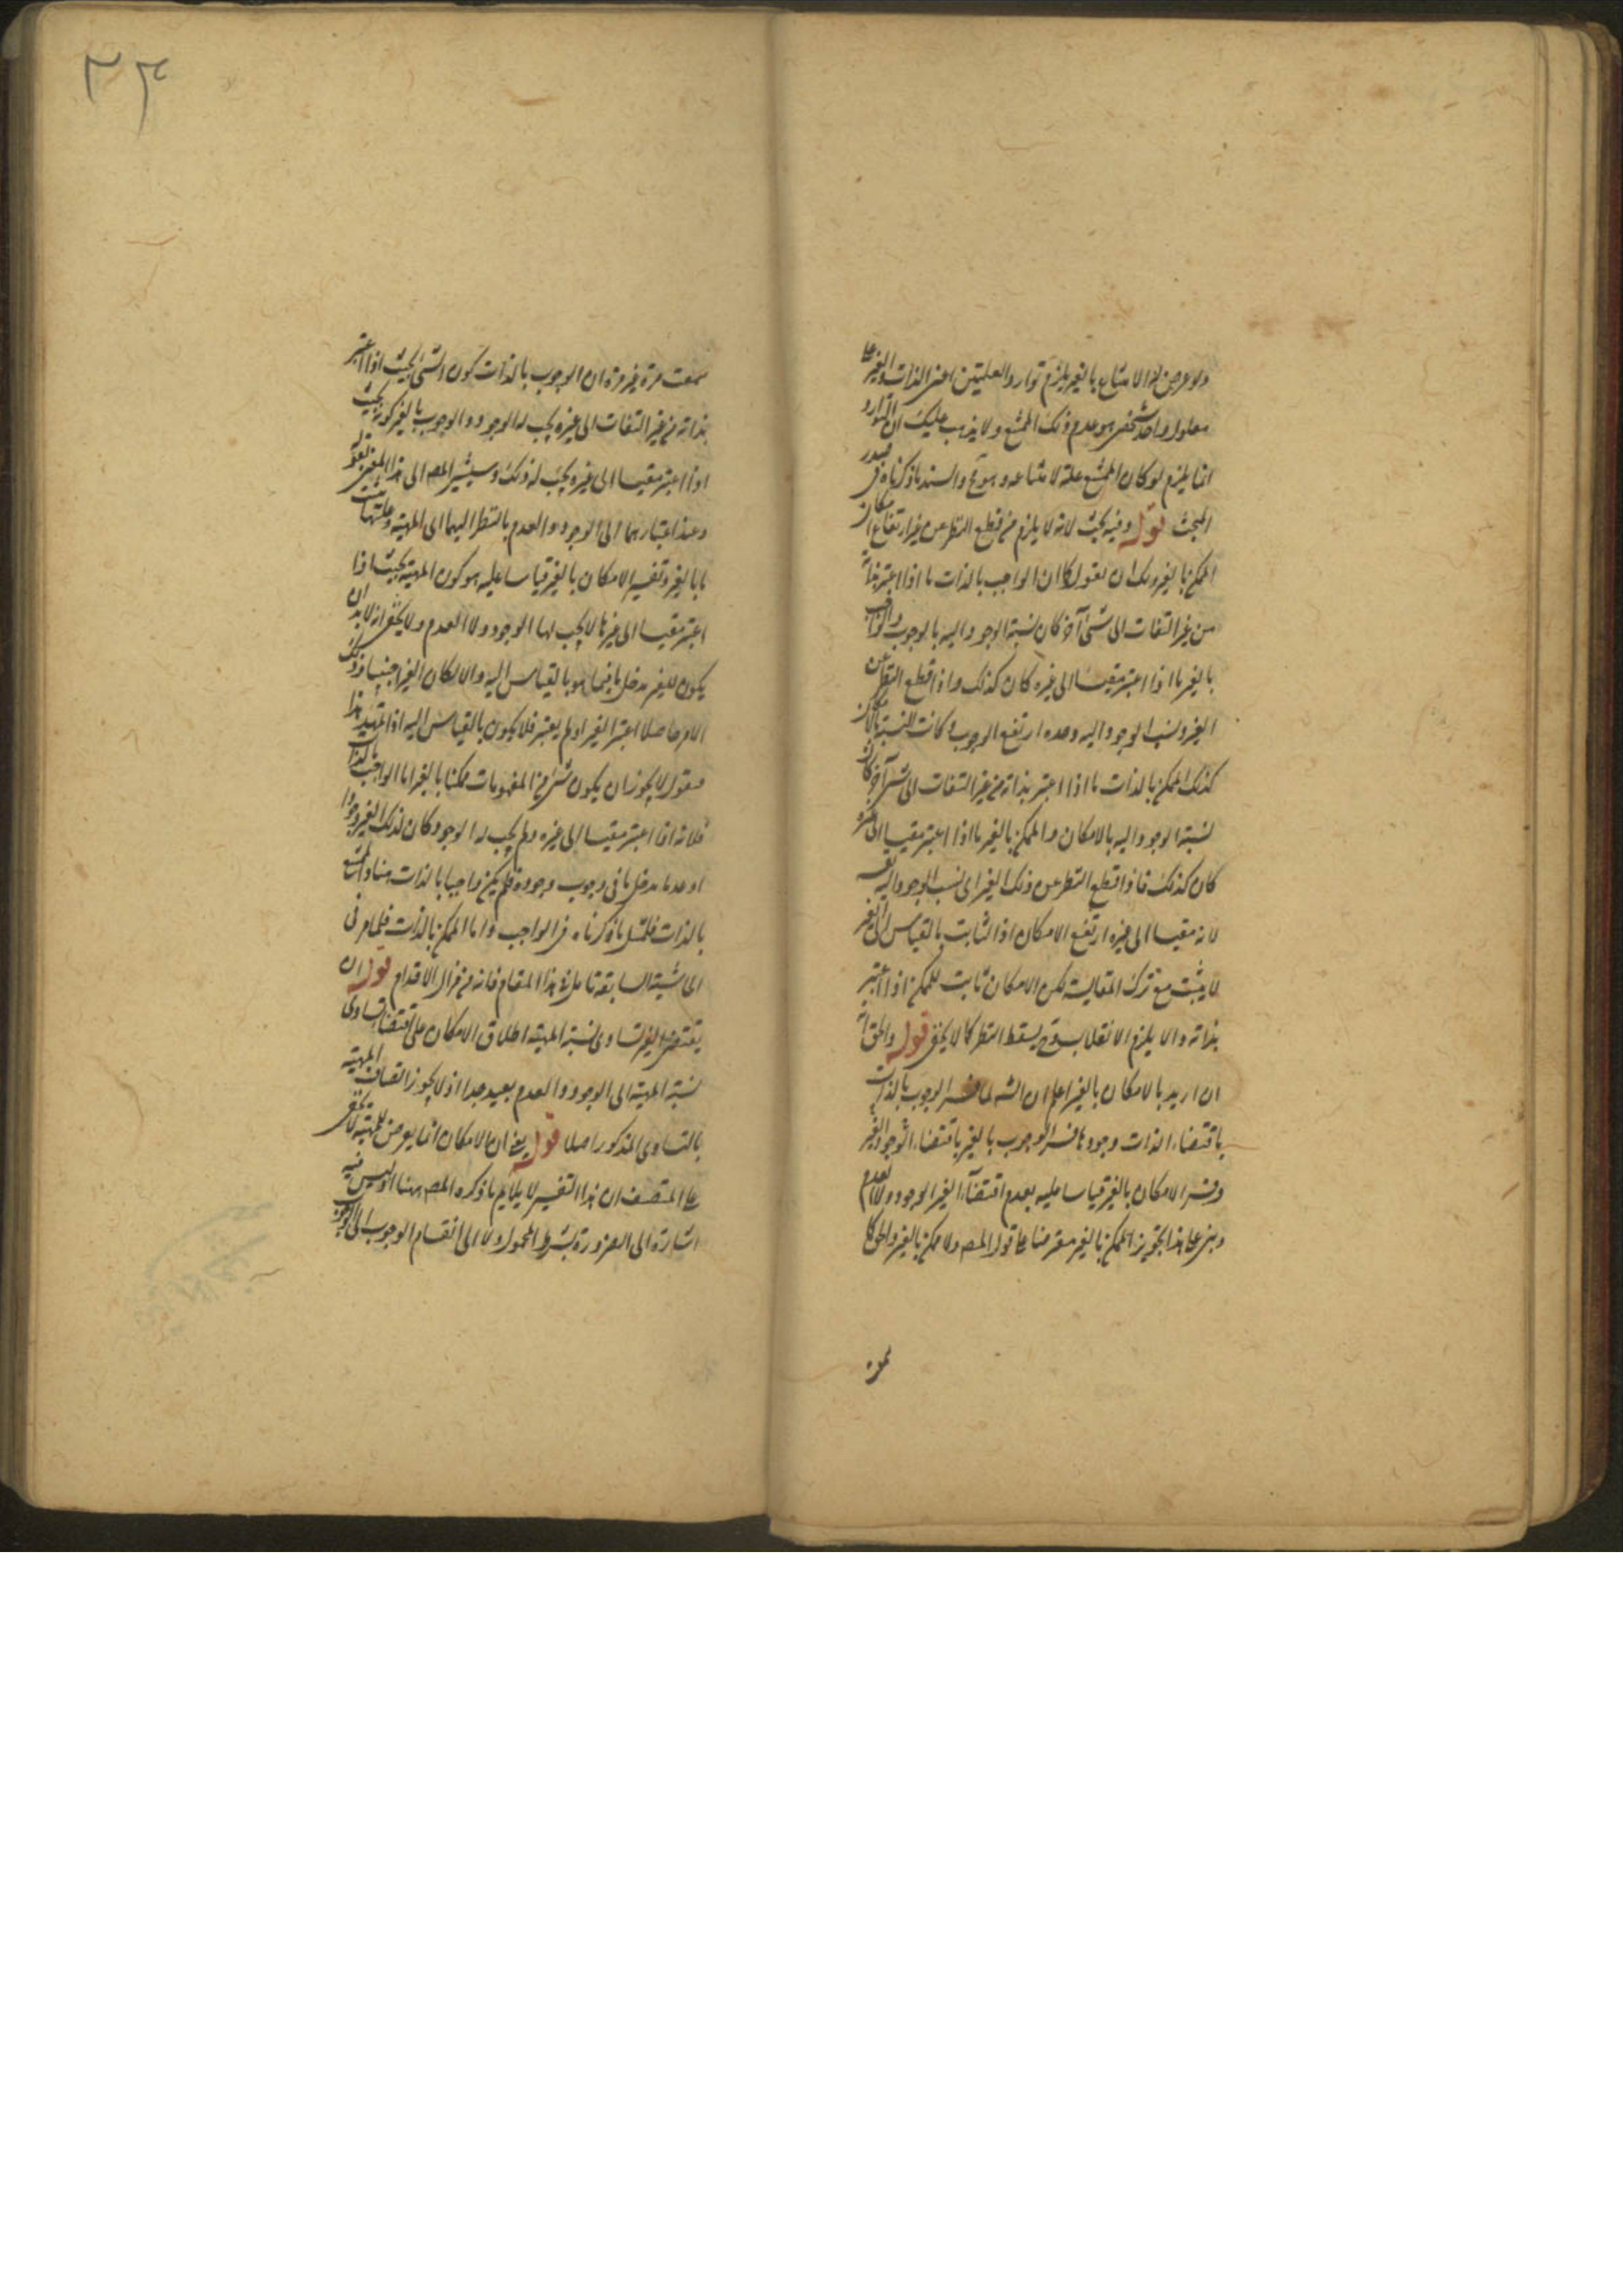 ولو عرض له الامتناع بالغير يلزم توارد العلتين اعنى الذات والغير على
معلول واحد شخصى هو عدم ذلك الممتنع ولا يذهب عليك ان التوارد
انما يلزم لو كان الممتنع علة لامتناعه وهو مم والسند ما ذكرناه فى صدر
المبحث قوله وفيه بحث لانه لا يلزم من قطع النظر عن غير ارتفاع امكان
الممكن بالغير ولك ان تقول كما ان الواجب بالذات ما اذا اعتبر بذاته
من غير التفات الى شئ آخر كان نسبة الوجود اليه بالوجوب والواجب
بالغير ما اذا اعتبر مقيسا الى غيره كان كذلك واذا قطع النظر عن
الغير ونسب الوجود اليه وحده ارتفع الوجوب وكانت النسبة بالامكان
كذلك الممكن بالذات ما اذا اعتبر بذاته من غير التفات الى شئ آخر كان
نسبة الوجود اليه بالامكان والممكن بالغير ما اذا اعتبر مقيسا الى غيره
كان كذلك فاذا قطع النظر عن ذلك الغير اى نسب الوجود اليه نفسه
لانه مقيسا الى غيره ارتفع الامكان اذ الثابت بالقياس الى الغير
لا يثبت مع ترك المقايسة لكن الامكان ثابت للممكن اذا اعتبر
بذاته والا يلزم الانقلاب وح يسقط النظر كما لا يخفى قوله والحق انه
ان اريد بالامكان بالغير اعلم ان الشه لما فسر الوجوب بالذات
باقتضاء الذات وجودها فسر الوجوب بالغير باقتضاء الوجود الغير
وفسر الامكان بالغير قياسا عليه بعدم اقتضاء الغير الوجود ولا العدم
وبنى على هذا تجويز الممكن بالغير معترضا على قول المصه ولا ممكن بالغير والحق كما
سمعت
٣٤
سمعت مرة غير مرة ان الوجوب بالذات كون الشئ بحيث اذا اعتبر
بذاته من غير التفات الى غيره يجب له الوجود والوجوب بالغير كونه بحيث
اذا اعتبر مقيسا الى غيره يجب له ذلك وسيشير المصه الى هذا المعنى بقوله
وعند اعتبارهما الى الوجود والعدم بالنظر اليهما الى المهية وعلتها يثبت
ما بالغير وتفسير الامكان بالغير قياسا عليه هو كون المهية بحيث اذا
اعتبر مقيسا الى غيرها لا يجب لها الوجود ولا العدم ولا يخفى انه لا بد ان
يكون للغير مدخل ما فيما هو بالقياس اليه والا لكان الغير اجنبيا وذلك
الامر حاصلا اعتبر الغير او لم يعتبر فلا يكون بالقياس اليه اذا تمهد هذا
فنقول لا يجوز ان يكون شئ من المفهومات ممكنا بالغير اما الواجب بالذات
فلانه اذا اعتبر مقيسا الى غيره ولم يجب له الوجود كان لذلك الغير وجودا
او عدما مدخل ما فى وجوب وجوده فلم يكن واجبا بالذات هذا والممتنع
بالذات فلمثل ما ذكرناه فى الواجب واما الممكن بالذات فلما مر فى
الحاشية السابقة تامل فى هذا المقام فانه من مزال الاقدام قوله ان
يقتضى الغير تساوى نسبة المهية اطلاق الامكان على اقتضاء تساوى
نسبة المهية الى الوجود والعدم بعيد جدا اذ لا يجوز اتصاف المهية
بالتساوى المذكور اصلا قوله يعنى ان الامكان انما يعرض للمهية لا يخفى
على المتصف ان هذا التفسير لا يلايم ما ذكره المصه ههنا اذ ليس فيه
اشارة الى الضرورة بشرط المحمول ولا الى انقسام الوجوب الى الوجوب